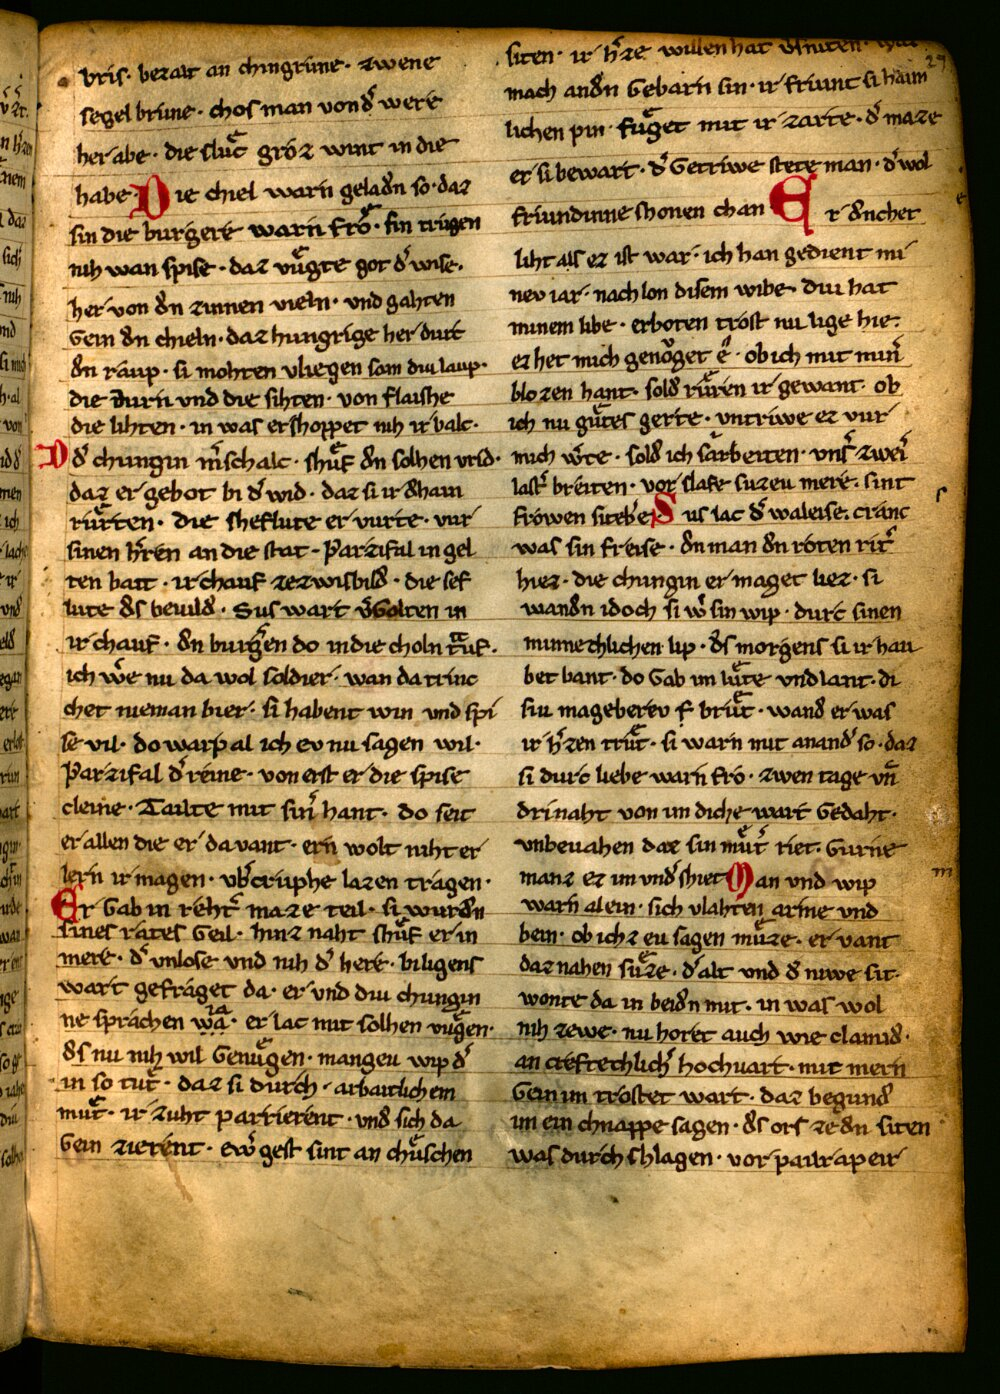 vris · bezalt an chingrune · zwene
segel brune · chos man von dͤ werie
her abe · die sluͤc groz wint in die
habe · Die chiel warn geladn so · daz
sin die burgere warn fro · sin trugen
nih wan spise · daz vuͤgte got dͤ wise ·
her von dn zinnen vieln · vnd gahten
Gein dn chieln · daz hungrige her durc
dn raup · si mohten vliegen som diu laup ·
die durn vnd die sihten · von flaishe
die lihten · in was ershoppet nih ir balc ·
Dͤ chungin m̄schalc · shuͤf dn solhen vrid ·
daz er gebot bi dͤ wid · daz si ir dhain
ruͤrten · die sheflute er vurte · vur
sinen h̄ren an die stat · Parzifal in gel
ten batt · ir chauf zezwisbild · die sef
lute ds beuild · Sus wart v̄Golten in
ir chauf · dn burḡen do in die choln trauf ·
ich w̄e nu da wol soldier · wan da trinc
chet nieman bier · si habent win vnd spi
se vil · do warp al ich ev nu sagen wil ·
Parzifal dͤ reine · von erst er die spise
cleine · Tailte mit sin̄ hant · do seit
er allen die er da vant · ern wolt niht er
lern ir magen · vb̄cruphe lazen tragen ·
Er Gab in reht̄ maze teil · si wurdn
sines rates Geil · hinz naht shuͤf er in
mere · dͤ vnlose vnd nih dͤ here · biligens
wart gefraget da · er vnd diu chungin
ne sprachen wa ia · er lac mit solhen vuͤgen ·
ds nu nih wil Genuͤgen · mangeu wip dͤ
in so tuͤt · daz si durch · arbaitlichem
muͤt · ir zuht parrierent · vnd sich da
Gein zierent · ew̄ gest sint an chuͤschen
siten · ir h̄ze willen hat v̄sniten ·
mach andn Gebarn sin · ir friunt si haim
lichen pin · fuͤget mit ir zarte · dͤ maze
er si bewart · dͤ Getriwe stete man · dͤ wol
friundinne shonen chan Er dncher
liht als ez ist war · ich han gedient mi
nev iar · nach lon disem wibe · diu hat
minem libe · erboten trost nu lige hie ·
ez het mich genoͮget e · ob ich mit min̄
blozen hant · sold ruͤren ir gewant · ob
ich nu guͤtes gerte · vntriwe ez vur
mich w̄te · sold ich sarbeiten · vns̄ zwei
last̄ breiten · vor slafe suzeu mere · sint
frowen siteb̄e Sus lac dͤ waleise · cranc
was sin freise · dn man dn roten rit̄
hiez · die chungin er maget liez · si
wandn idoch si w̄ sin wip · durc sinen
minnechlichen lip · ds morgens si ir hau
bet bant · do Gab im luͤte vnd lant · di
siu magebereu f bruͤt · wand er was
ir h̄zen truͤt · si warn mit anand̄ so · daz
si durc liebe warn fro · zwen tage vn̄
dri naht von im diche wart Gedaht ·
vnbeuahen daz sin muͤt̄ riet · Gurne
manz ez im vnd̄shiet Man vnd wip
warn al ein · sich vlahten arme vnd
bein · ob ichz eu sagen muͤze · er vant
daz nahen suͤze · dͤ alt vnd d niwe sit ·
wonte da in beidn mit · in was wol
nih zewe · nu horet auch wie clamid ·
an creftechlich̄ hochuart · mit mern
Gein im trostet wart · daz begund̄
im ein chnappe sagen · ds ors ze dn siten
was durch shlagen · vor patrapeir